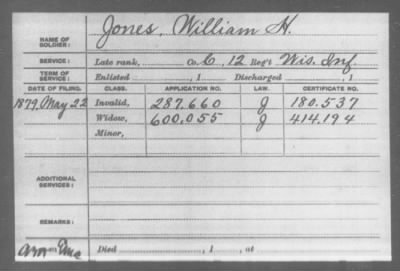 NAME OF SOLDIER: Jones, William H.
SERVICE: Late rank, Co. 6, 12 Reg't Wis. Inf.
TERM OF SERVICE: Enlisted , 1 Discharged , 1
DATE OF FILING. CLASS. APPLICATION NO. LAW. CERTIFICATE NO.
1879, May 22 Invalid, 287.660 J 180.537
Widow, 600,055 J 414.194
Minor,
ADDITIONAL SERVICES:
REMARKS:
Died , 1 , at